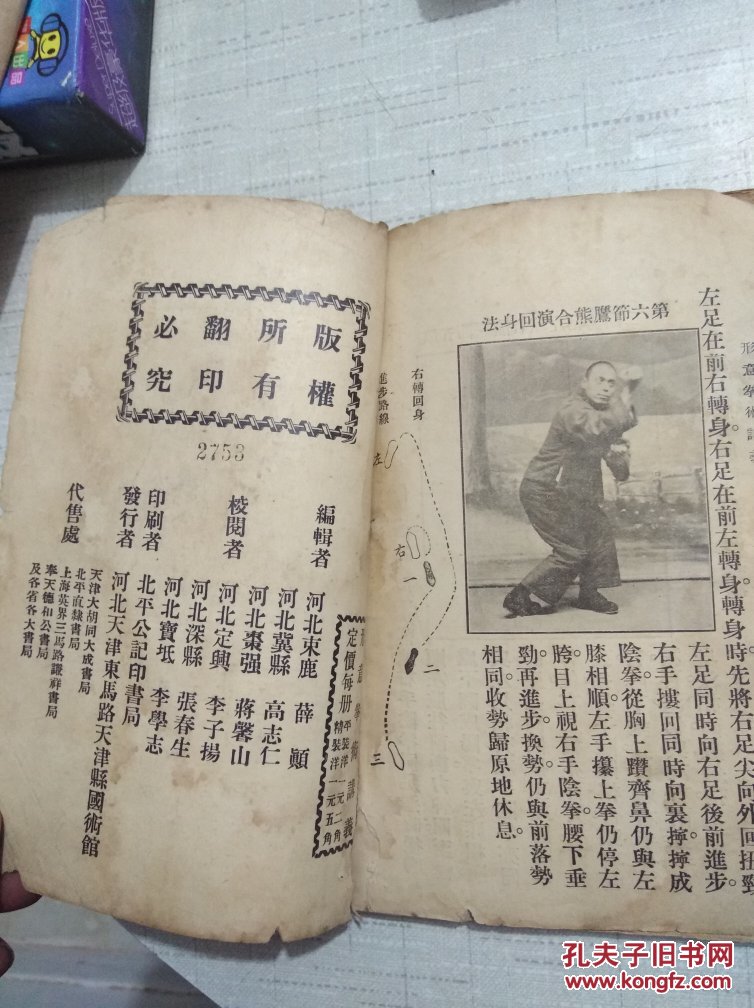 形意拳術講義
左足在前右轉身。右足在前左轉身。轉身時。先將右足尖向外回扭。勁
左足同時向右足後前進步。
右手摟回同時向裏擰。擰成
陰拳從胸上躦齊鼻仍與左
膝相順。左手攥上拳仍停左
胯。目上視。右手陰拳。腰下垂
勁。再進步換勢。仍與前落勢
相同。收勢歸原地休息。
第六節鷹熊合演回身法
右轉回身
進步路線
左
右
一
二
三
版權
所有
翻印
必究
2753
形意拳術講義
定價每册
平裝洋一元二角
精裝洋一元五角
編輯者 河北束鹿 薛顚
校閱者 河北冀縣 高志仁
河北棗强 蔣馨山
河北定興 李子揚
河北深縣 張春生
河北寶坻 李學志
印刷者 北平公記印書局
發行者 河北天津東馬路天津縣國術館
代售處 天津大胡同大成書局
北平直隸書局
上海英界三馬路謙祥書局
奉天德和公書局
及各省各大書局
孔夫子旧书网
www.kongfz.com